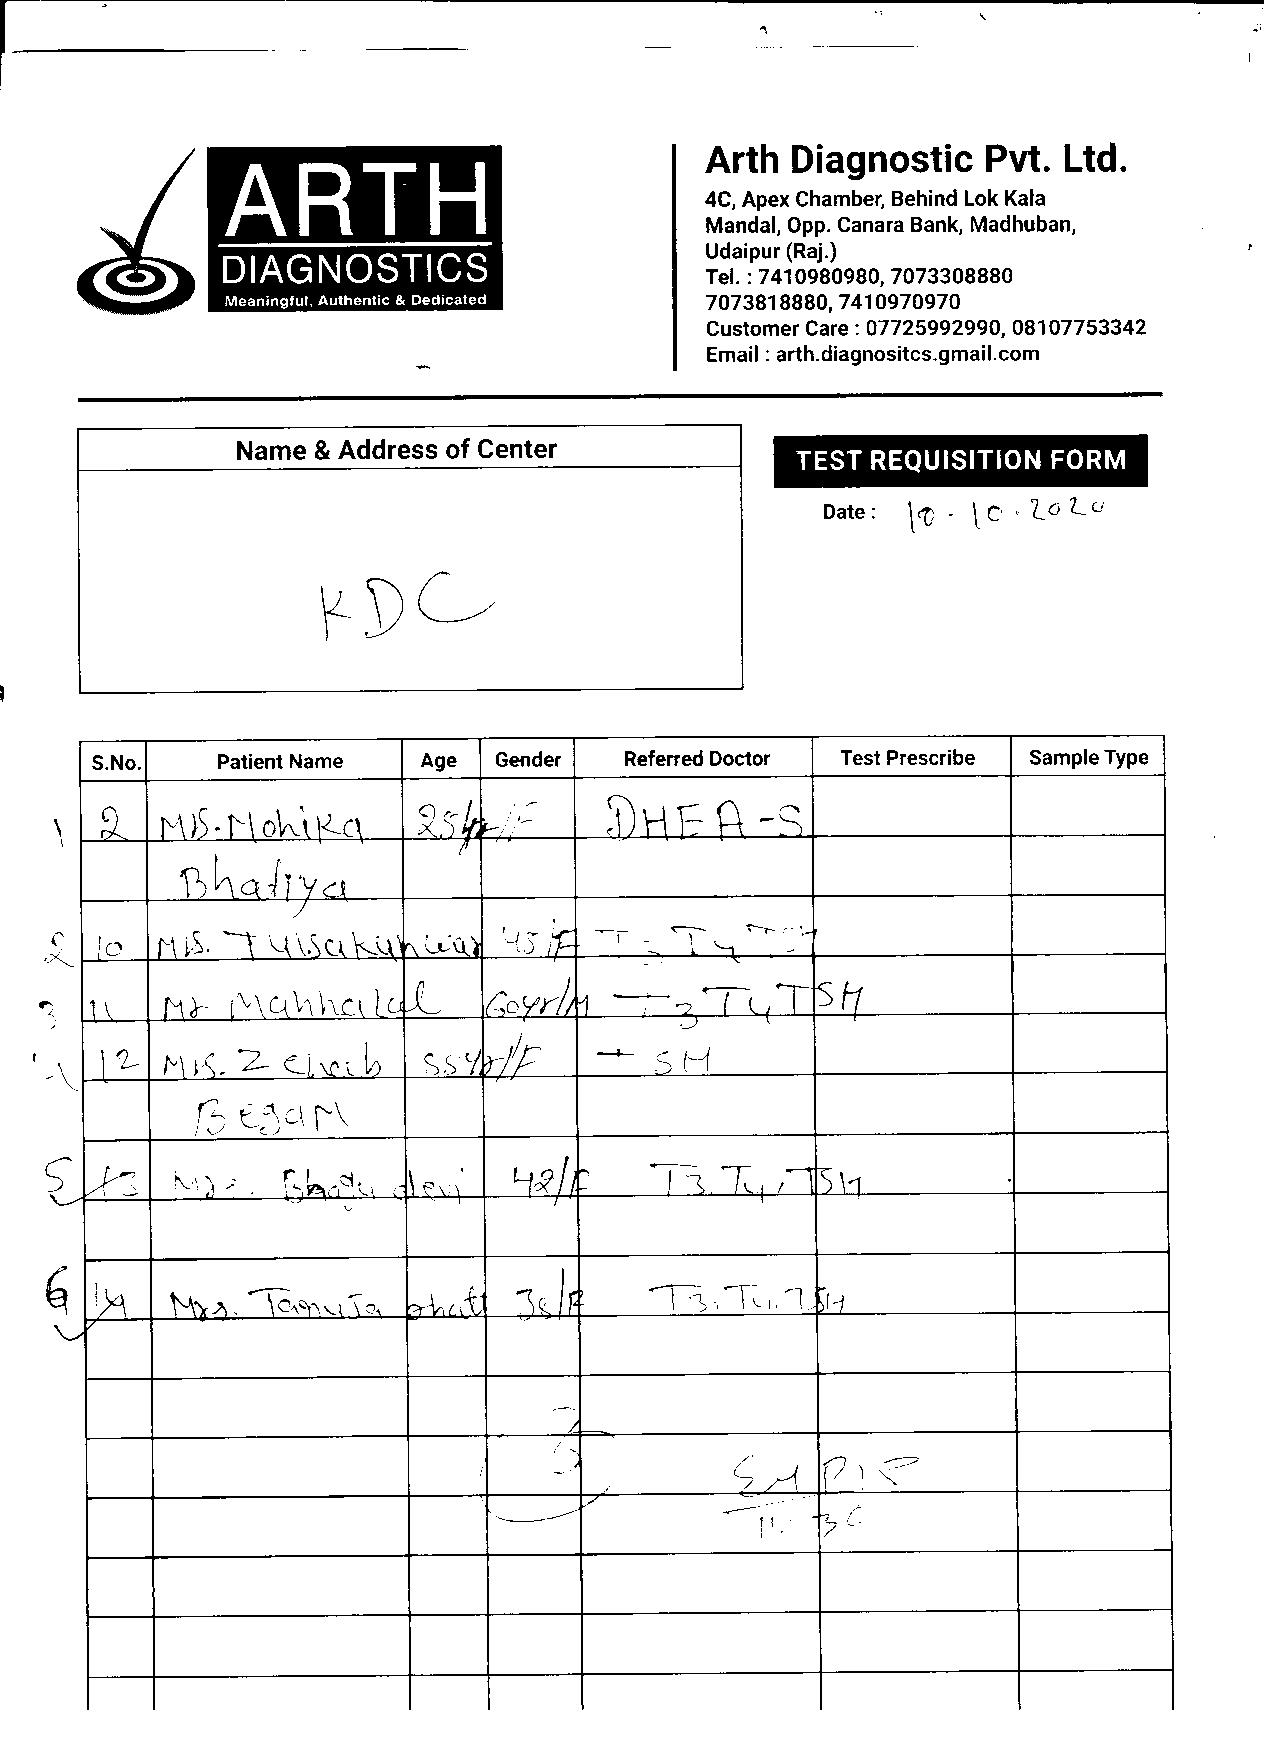 ARTH
DIAGNOSTICS
Meaningful, Authentic & Dedicated
Arth Diagnostic Pvt. Ltd.
4C, Apex Chamber, Behind Lok Kala
Mandal, Opp. Canara Bank, Madhuban,
Udaipur (Raj.)
Tel. : 7410980980, 7073308880
7073818880, 7410970970
Customer Care : 07725992990, 08107753342
Email : arth.diagnositcs.gmail.com
Name & Address of Center
TEST REQUISITION FORM
Date : 10-10.2020
KDC
S.No. Patient Name Age Gender Referred Doctor Test Prescribe Sample Type
1 2 Mrs. Mohika 25yr/F DHEA-S
Bhatiya
2 10 Mrs. Tulsakunwar 45/F T3 T4 TSH
3 11 Mr Mannalal 60yr/M T3 T4 TSH
4 12 Mrs. 55yr/F TSH
Begam
5 13 Mrs. devi 42/F T3. T4, TSH
6 14 Mrs. Tanuja bhatt 36/F T3. T4. TSH